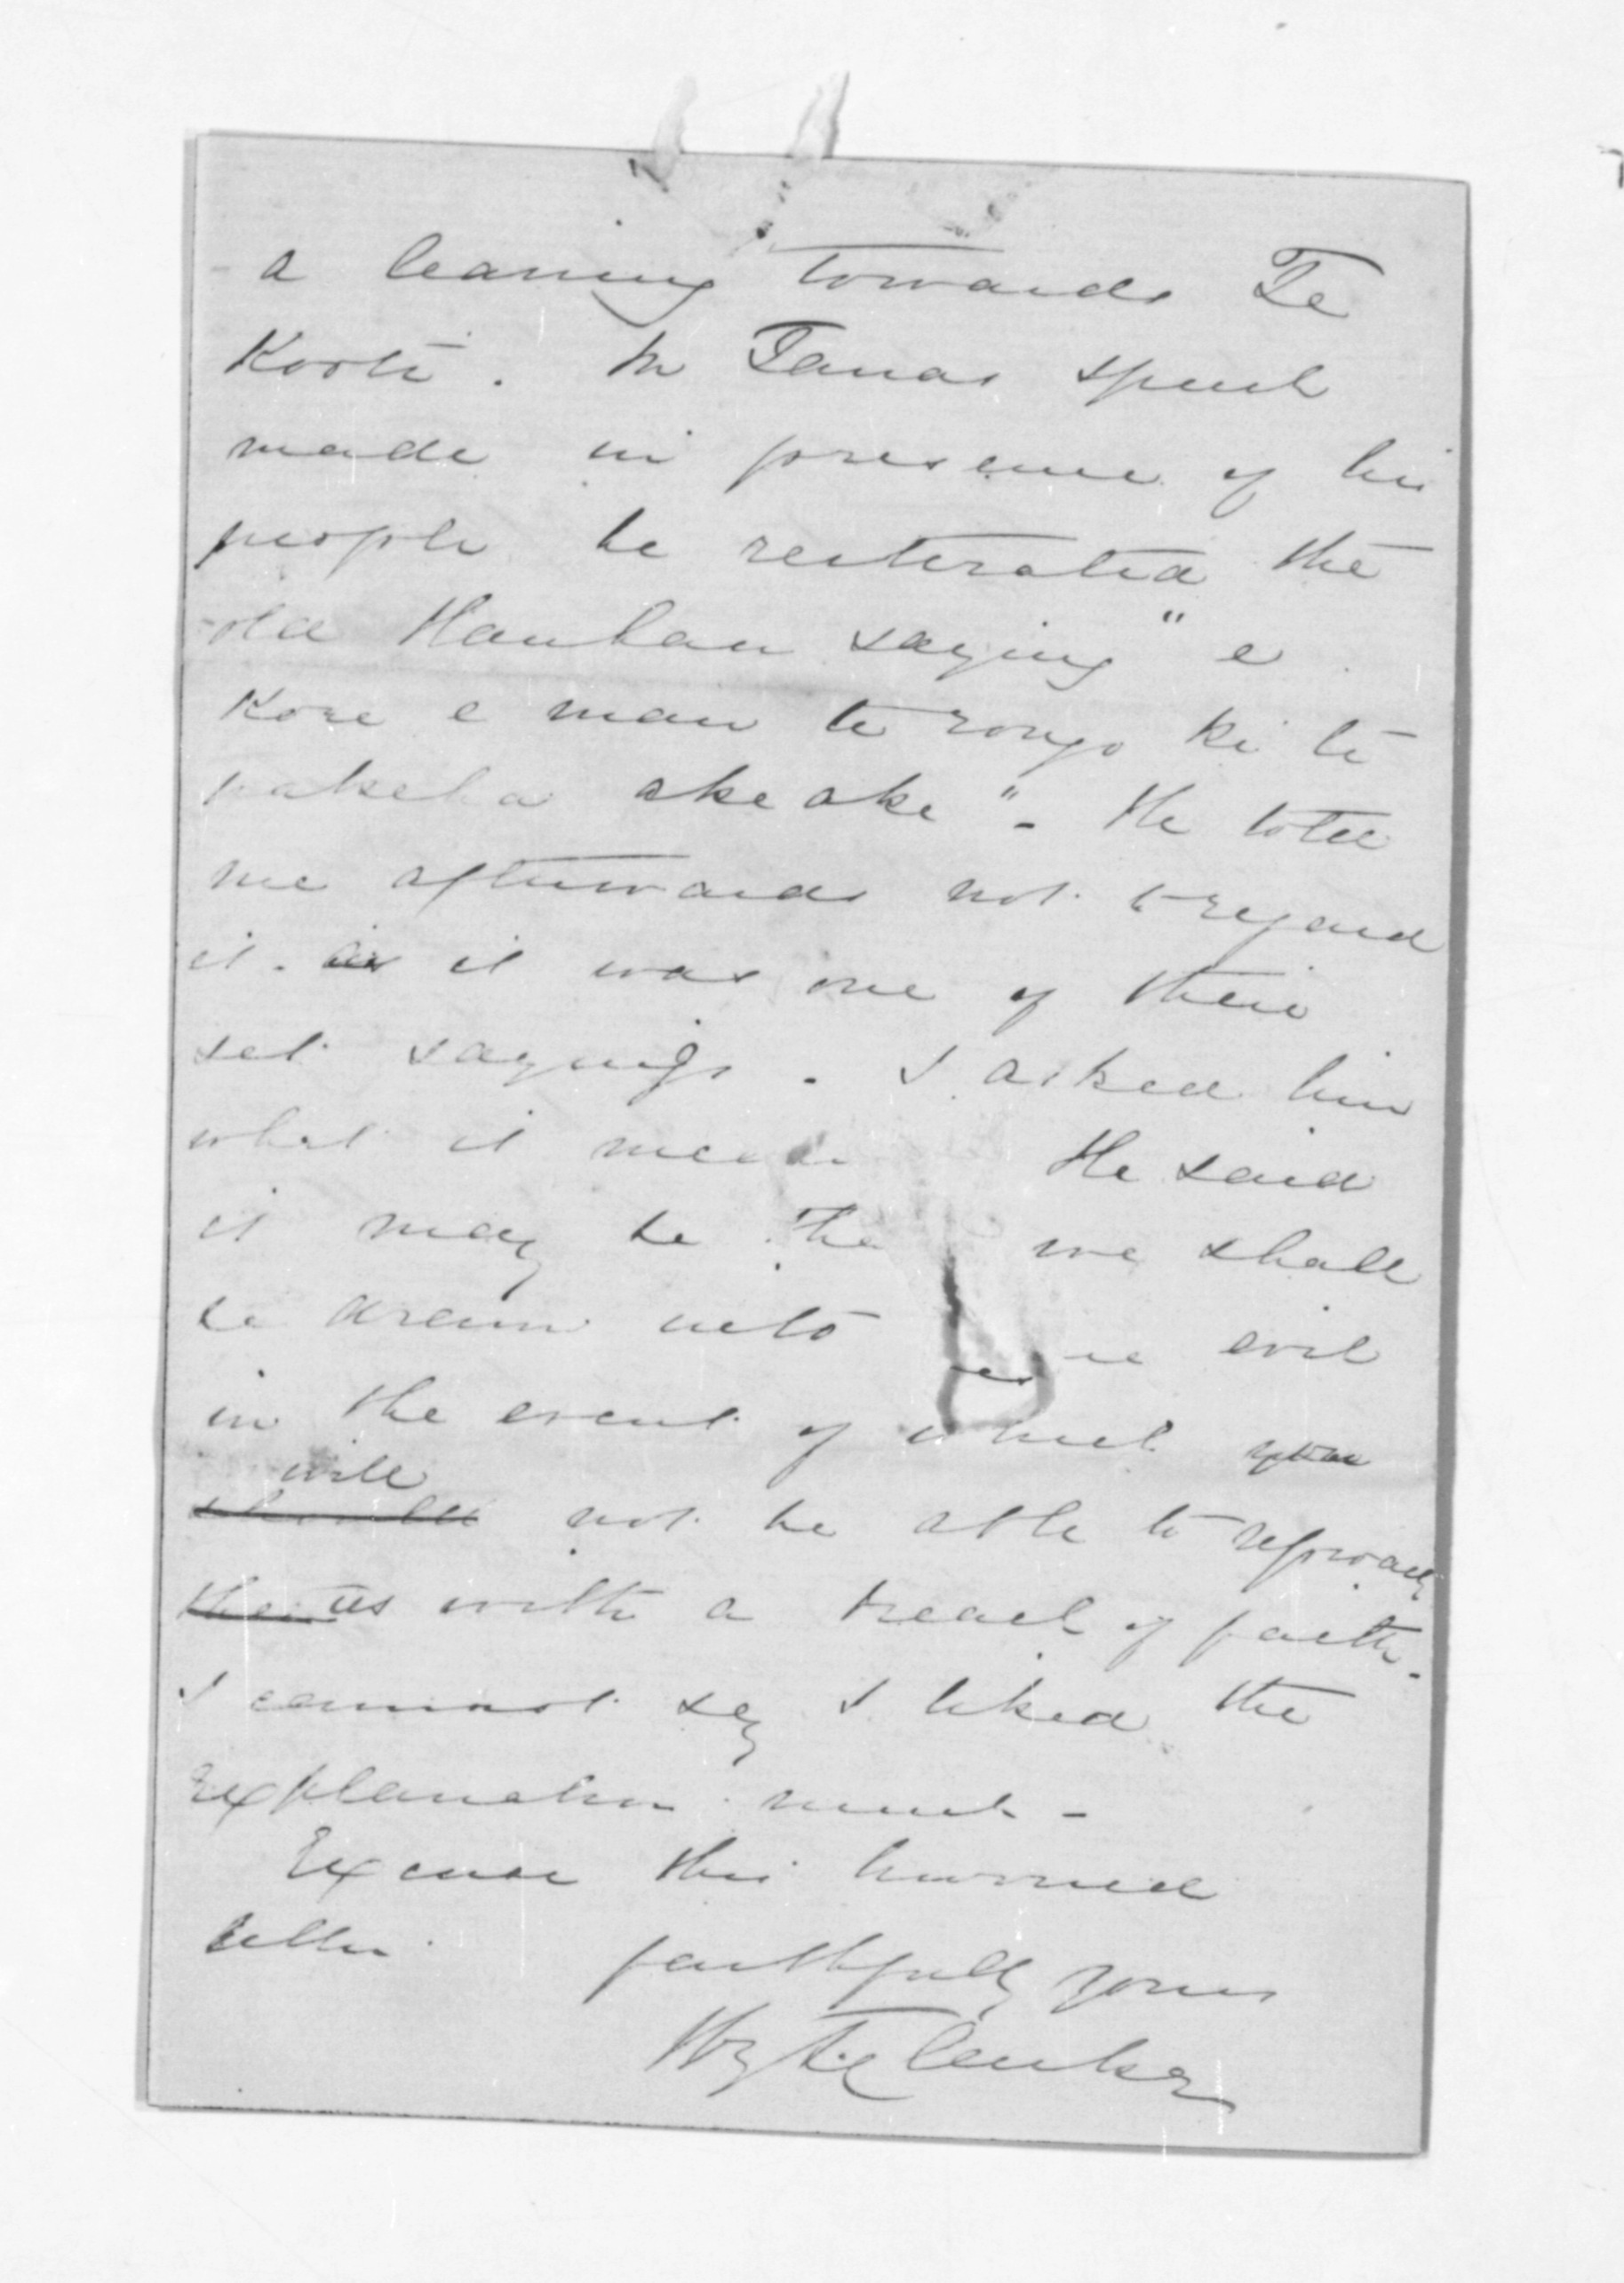 a leaning towards Te
Kooti. In Tanas speech
made in presence of his
people he reiterated the
old Hauhau saying "e
Kore e mau te rongo ki te
pakeha ake ake" - He told
me afterwards not to regard
it. as it was one of their
set sayings. I asked him
what it He said
it may be we shall
be drawn into evil
in the event of which you
will
should not be able to reproach
us with a breach of faith.
I cannot say I liked the
explanation much -
Excuse this hurried
letter. faithfully yours